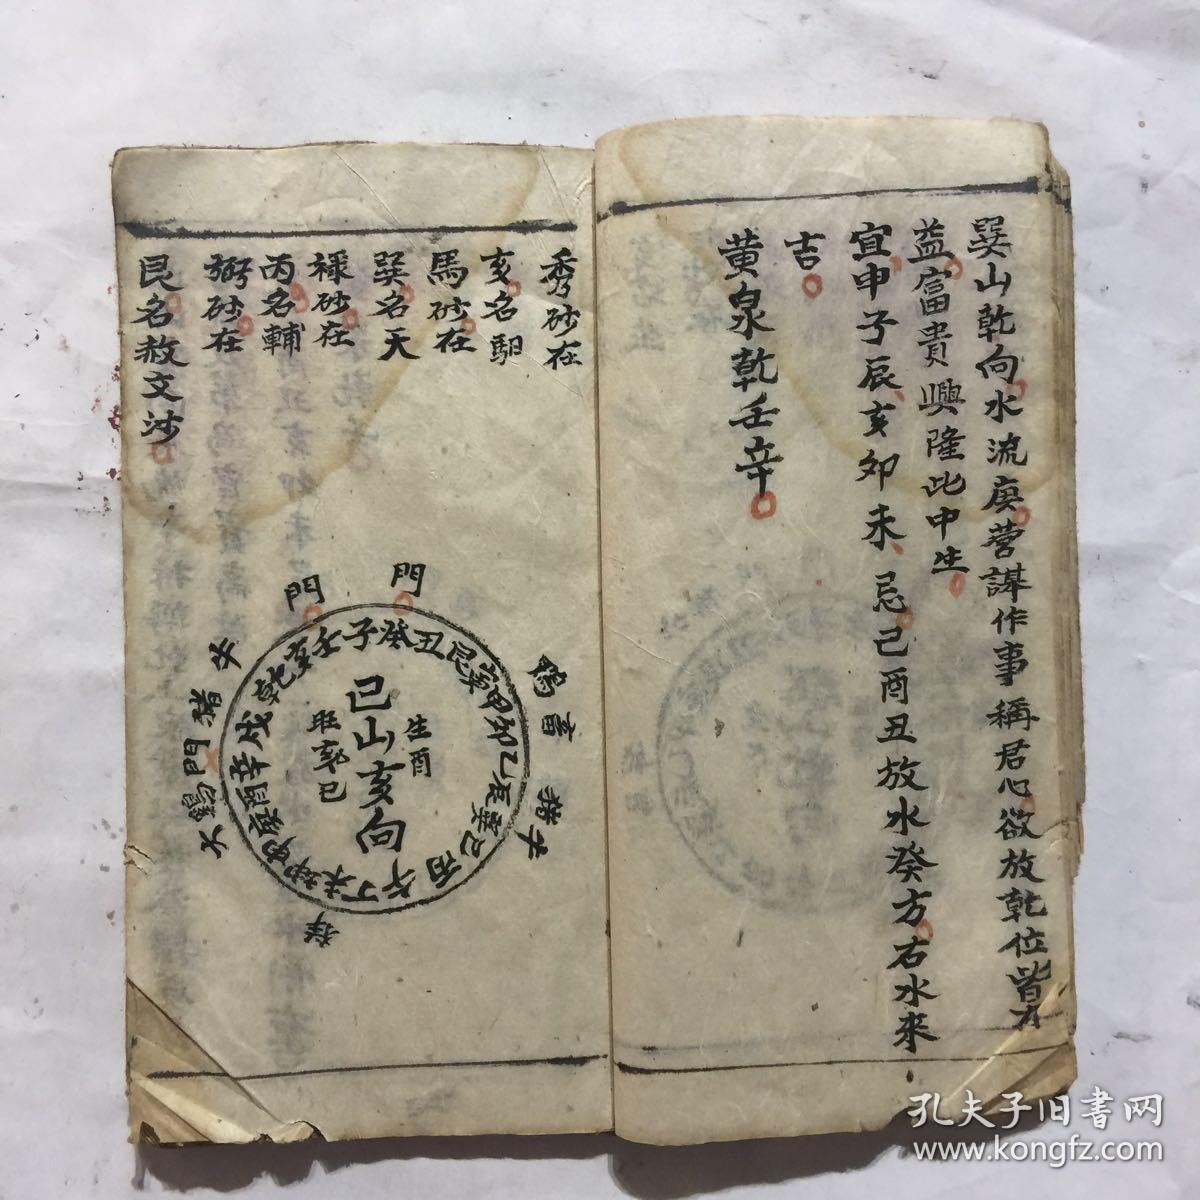 巽山乾向水流庚营謀作事稱君心欲放乾位皆有
益富貴興隆此中生
宜申子辰亥卯未忌己酉丑放水癸方右水來
吉
黄泉乾壬辛
秀砂在
亥名馹
馬砂在
巽名天
祿砂在
丙名輔
弼砂在
艮名赦文沙
門
門
壬子癸丑艮寅甲卯乙辰巽巳丙午丁未坤申庚酉辛戌乾亥
生酉
巳山亥向
旺亥巳
鴨畜
猪牛
猪
門
孔夫子旧书网
www.kongfz.com